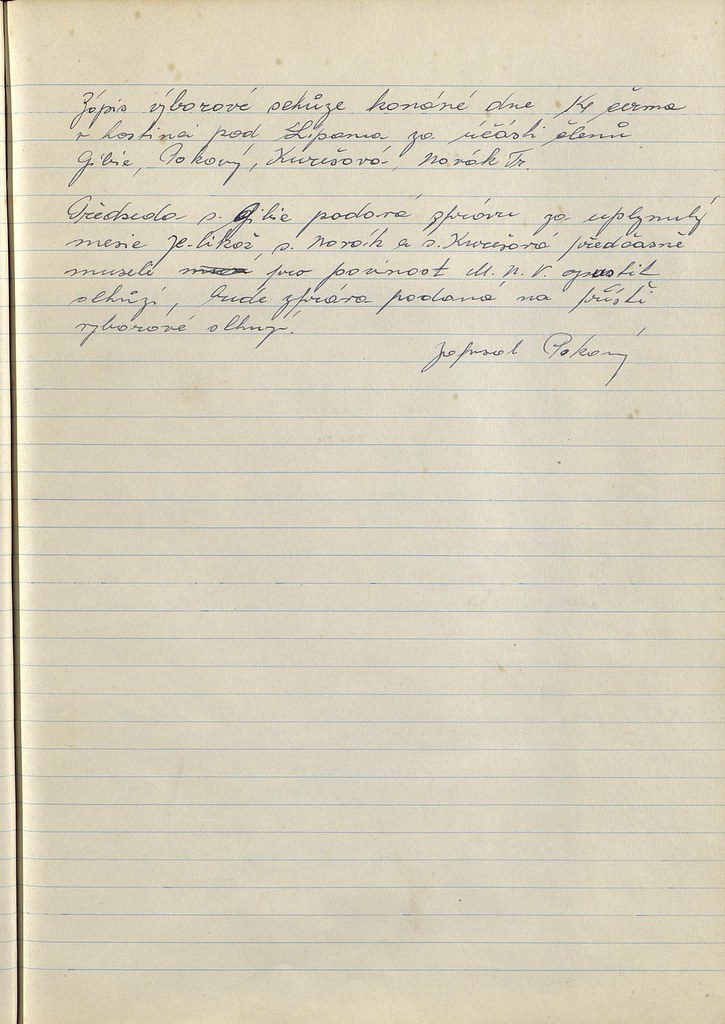 Zápis výborové schůze konáné dne 14 června
v hostinci pod Lipama za účásti členů
Gibie, Pokorný, Kurešová, Novák Fr.
Předseda s. Gibie podává zprávu za uplynulý
mesic je-likož, s. Novák a s. Kurešová předčasně
museli pro povinost M. N. V. opustit
schůzi, bude zpráva podaná na příští
vyborové schuzi.
zapsal Pokorný